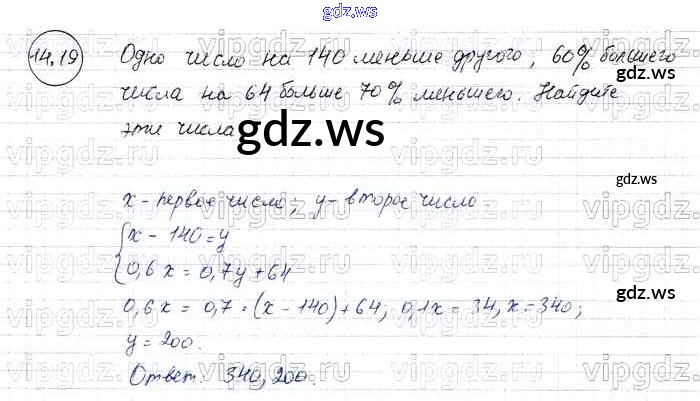 gdz.ws
14.19 Одно число на 140 меньше другого, 60% большего
числа на 64 больше 70% меньшего. Найдите
эти числа
gdz.ws
gdz.ws
x - первое число, y - второе число
{ x - 140 = y
0,6x = 0,7y + 64
gdz.ws
0,6x = 0,7 · (x - 140) + 64; 0,1x = 34, x = 340;
y = 200.
Ответ: 340, 200.
gdz.ws